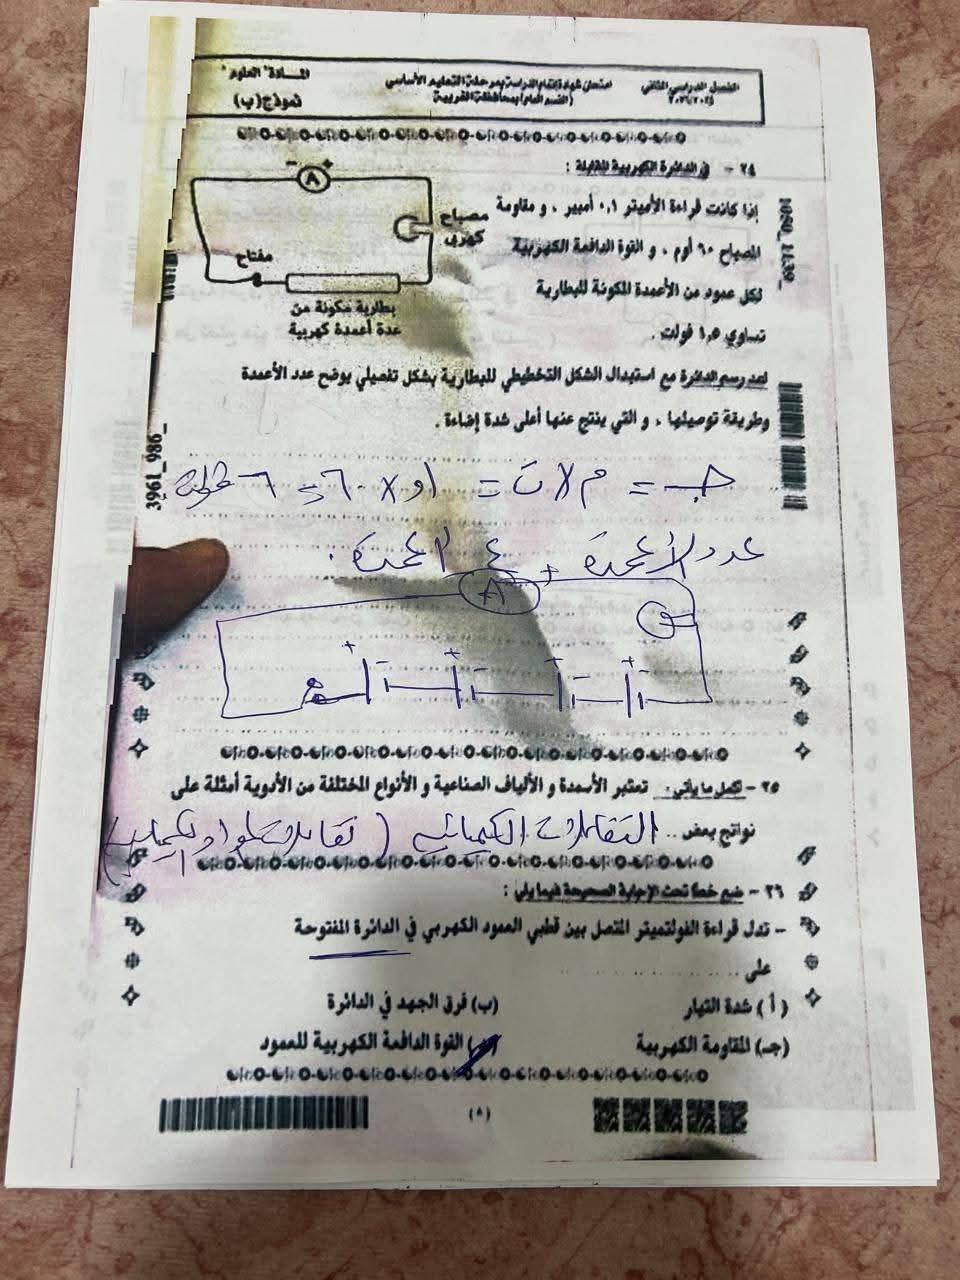 المادة "العلوم"
نموذج (ب)
امتحان شهادة إتمام الدراسة بمرحلة التعليم الأساسي
(القسم العام) بمحافظة الغربية
الفصل الدراسي الثاني
٢٠٢٦/٢٠٢٥
٢٤ - في الدائرة الكهربية المقابلة :
إذا كانت قراءة الأميتر ٠,١ أمبير ، و مقاومة
المصباح ٦٠ أوم ، و القوة الدافعة الكهربية
لكل عمود من الأعمدة المكونة للبطارية
تساوي ١,٥ فولت .
- A +
مصباح
كهربي
مفتاح
بطارية مكونة من
عدة أعمدة كهربية
أعد رسم الدائرة مع استبدال الشكل التخطيطي للبطارية بشكل تفصيلي يوضح عدد الأعمدة
وطريقة توصيلها ، و التي ينتج عنها أعلى شدة إضاءة .
3961_986_
جـ = م × ت = ٠,١ × ٦٠ = ٦ فولت
عدد الأعمدة ٤ أعمدة .
A +
+ - + - + - + -
٢٥ - أكمل ما يأتي : تعتبر الأسمدة و الألياف الصناعية و الأنواع المختلفة من الأدوية أمثلة على
نواتج بعض .. التفاعلات الكيميائية (تفاعلات المواد الكيميائية)
٢٦ - ضع خطًا تحت الإجابة الصحيحة فيما يلي :
- تدل قراءة الفولتميتر المتصل بين قطبي العمود الكهربي في الدائرة المفتوحة
على ..................
(أ) شدة التيار
(ب) فرق الجهد في الدائرة
(جـ) المقاومة الكهربية
(د) القوة الدافعة الكهربية للعمود
(٨)